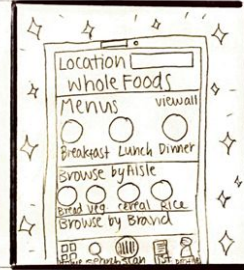 Location
Whole Foods
Menus view all
Breakfast Lunch Dinner
Browse by Aisle
Bread veg. cereal Rice
Browse by Brand
search scan list